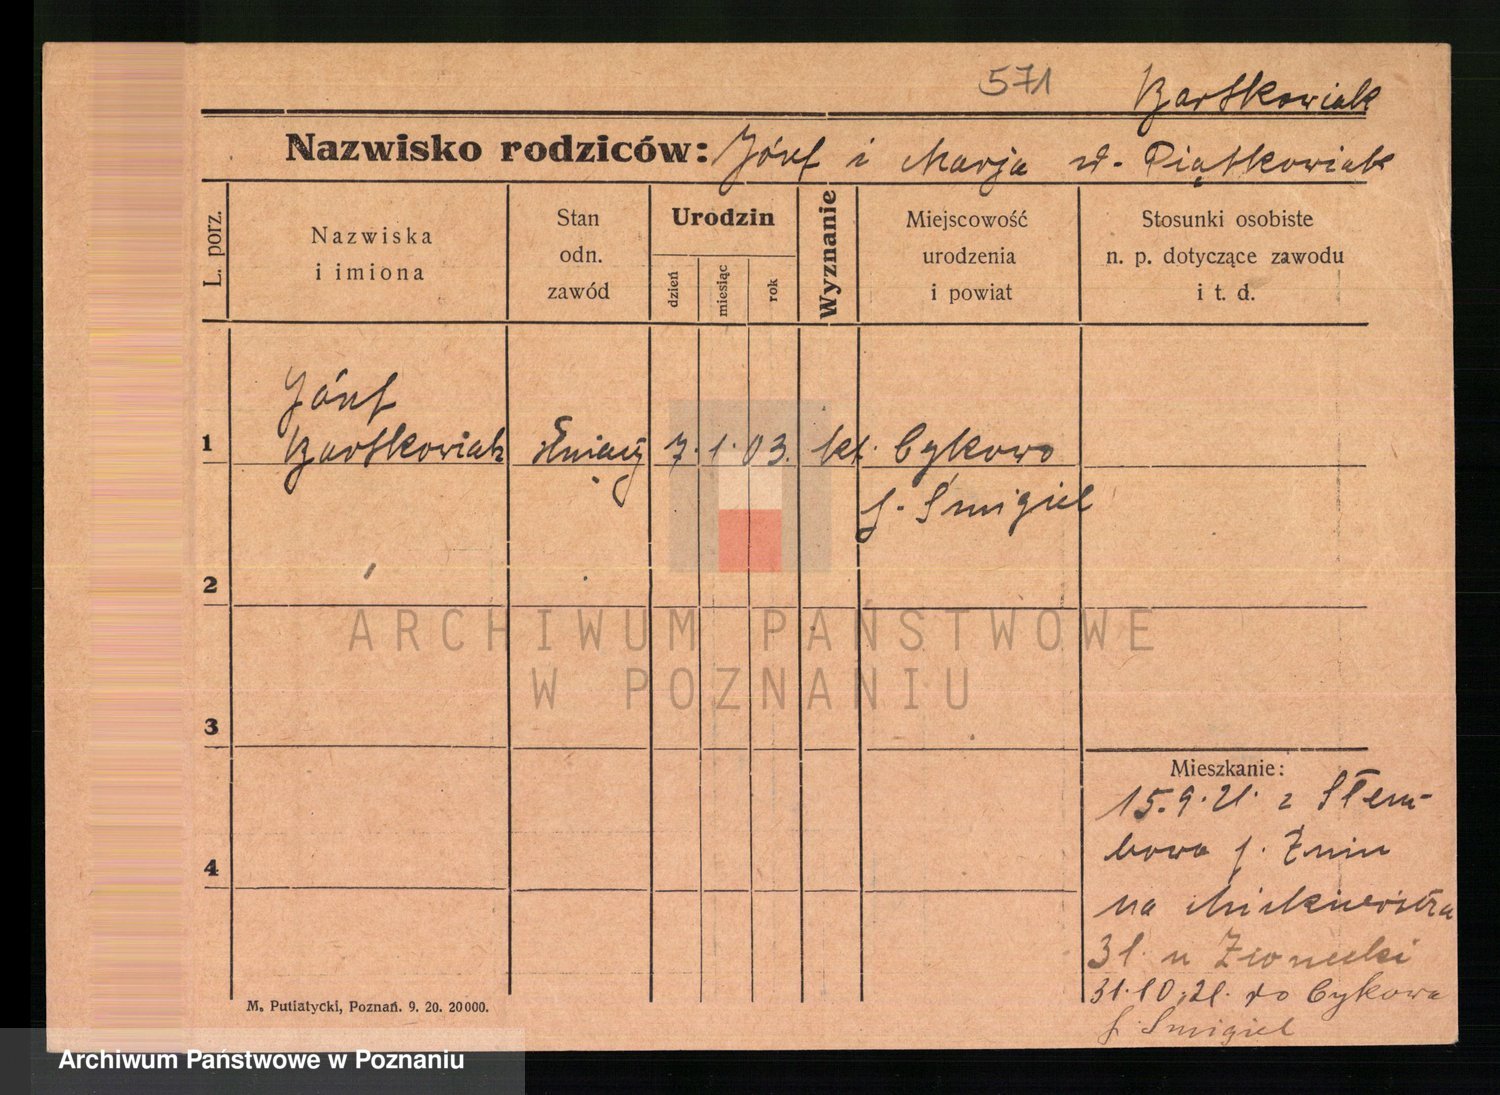 571
Bartkowiak
Nazwisko rodziców: Józef i Marja z d. Piątkowiak
L. porz.
Nazwiska
i imiona
Stan
odn.
zawód
Urodzin
dzień
miesiąc
rok
Wyznanie
Miejscowość
urodzenia
i powiat
Stosunki osobiste
n. p. dotyczące zawodu
i t. d.
Józef
1 Bartkowiak służący 7. 1. 03. kt. Cykowo
p. Śmigiel
2
3
4
Mieszkanie:
15.9.21. z Słem-
bowa p. Żnin
na Mickiewicza
31 u
31.10.21. do Cykowa
p. Śmigiel
M. Putiatycki, Poznań. 9. 20. 20000.
ARCHIWUM PAŃSTWOWE
W POZNANIU
Archiwum Państwowe w Poznaniu